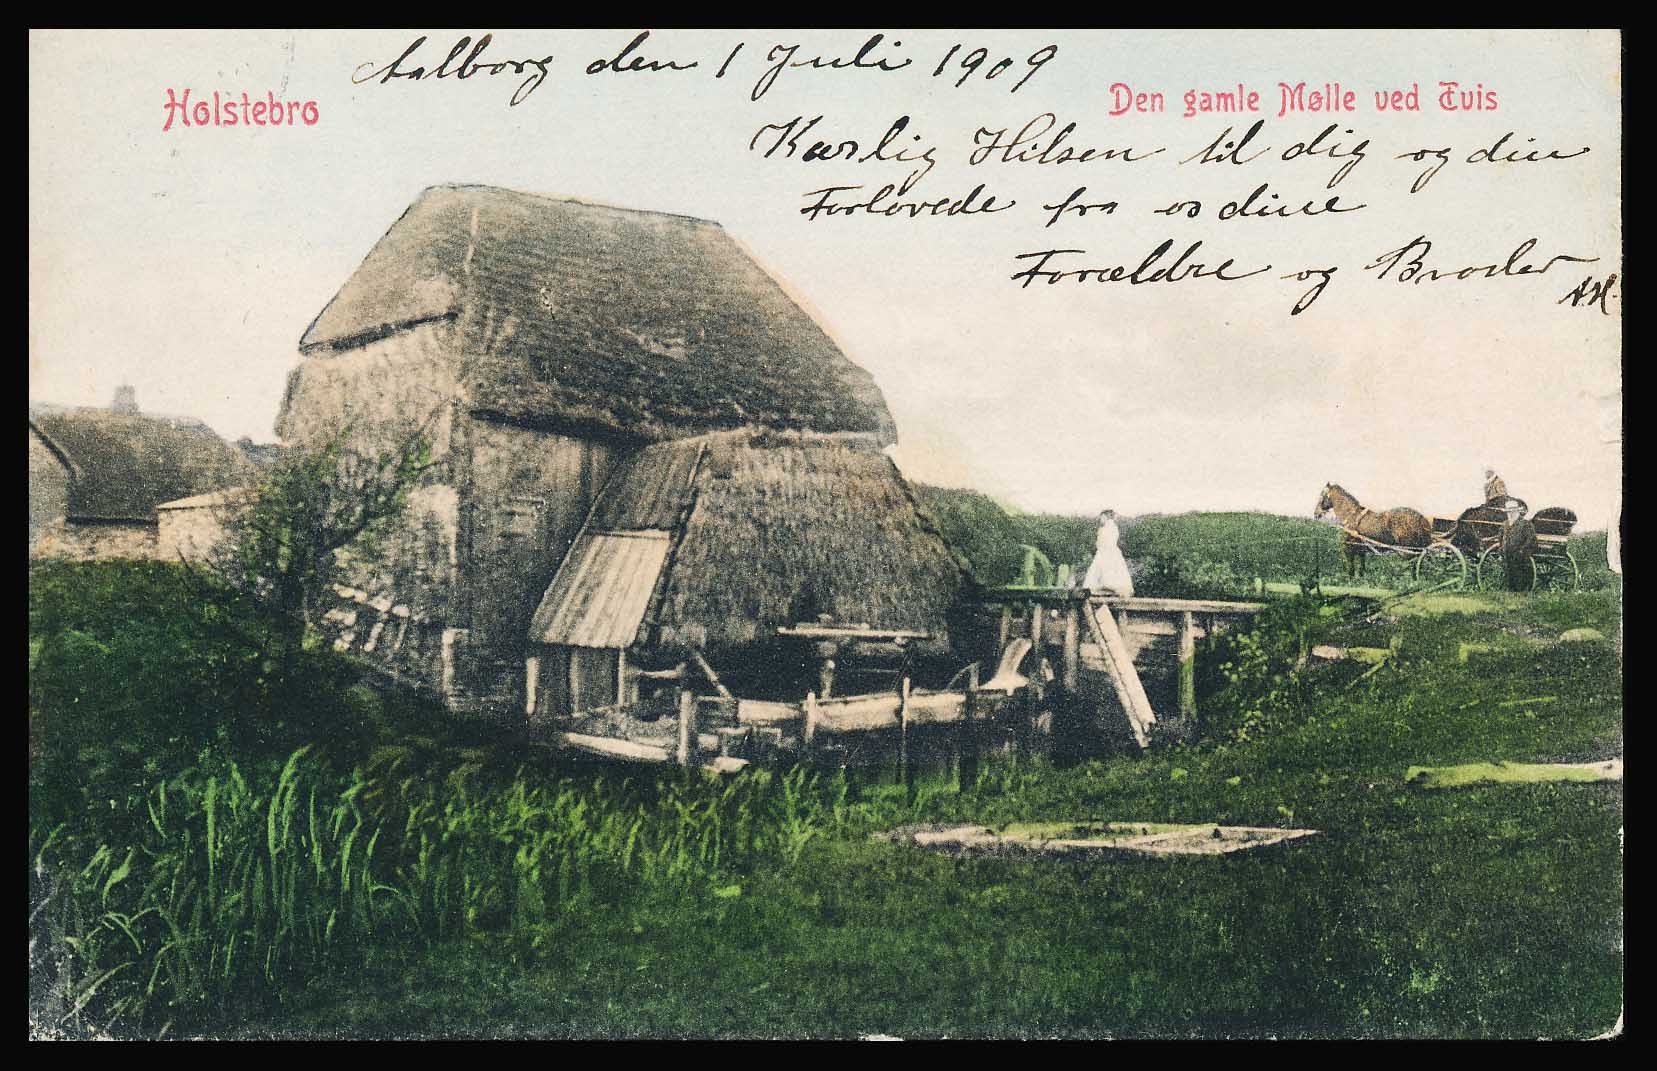 Aalborg den 1 Juli 1909
Holstebro
Den gamle Mølle ved Tvis
Kærlig Hilsen til dig og din
Forlovede fra os dine
Forældre og Broder